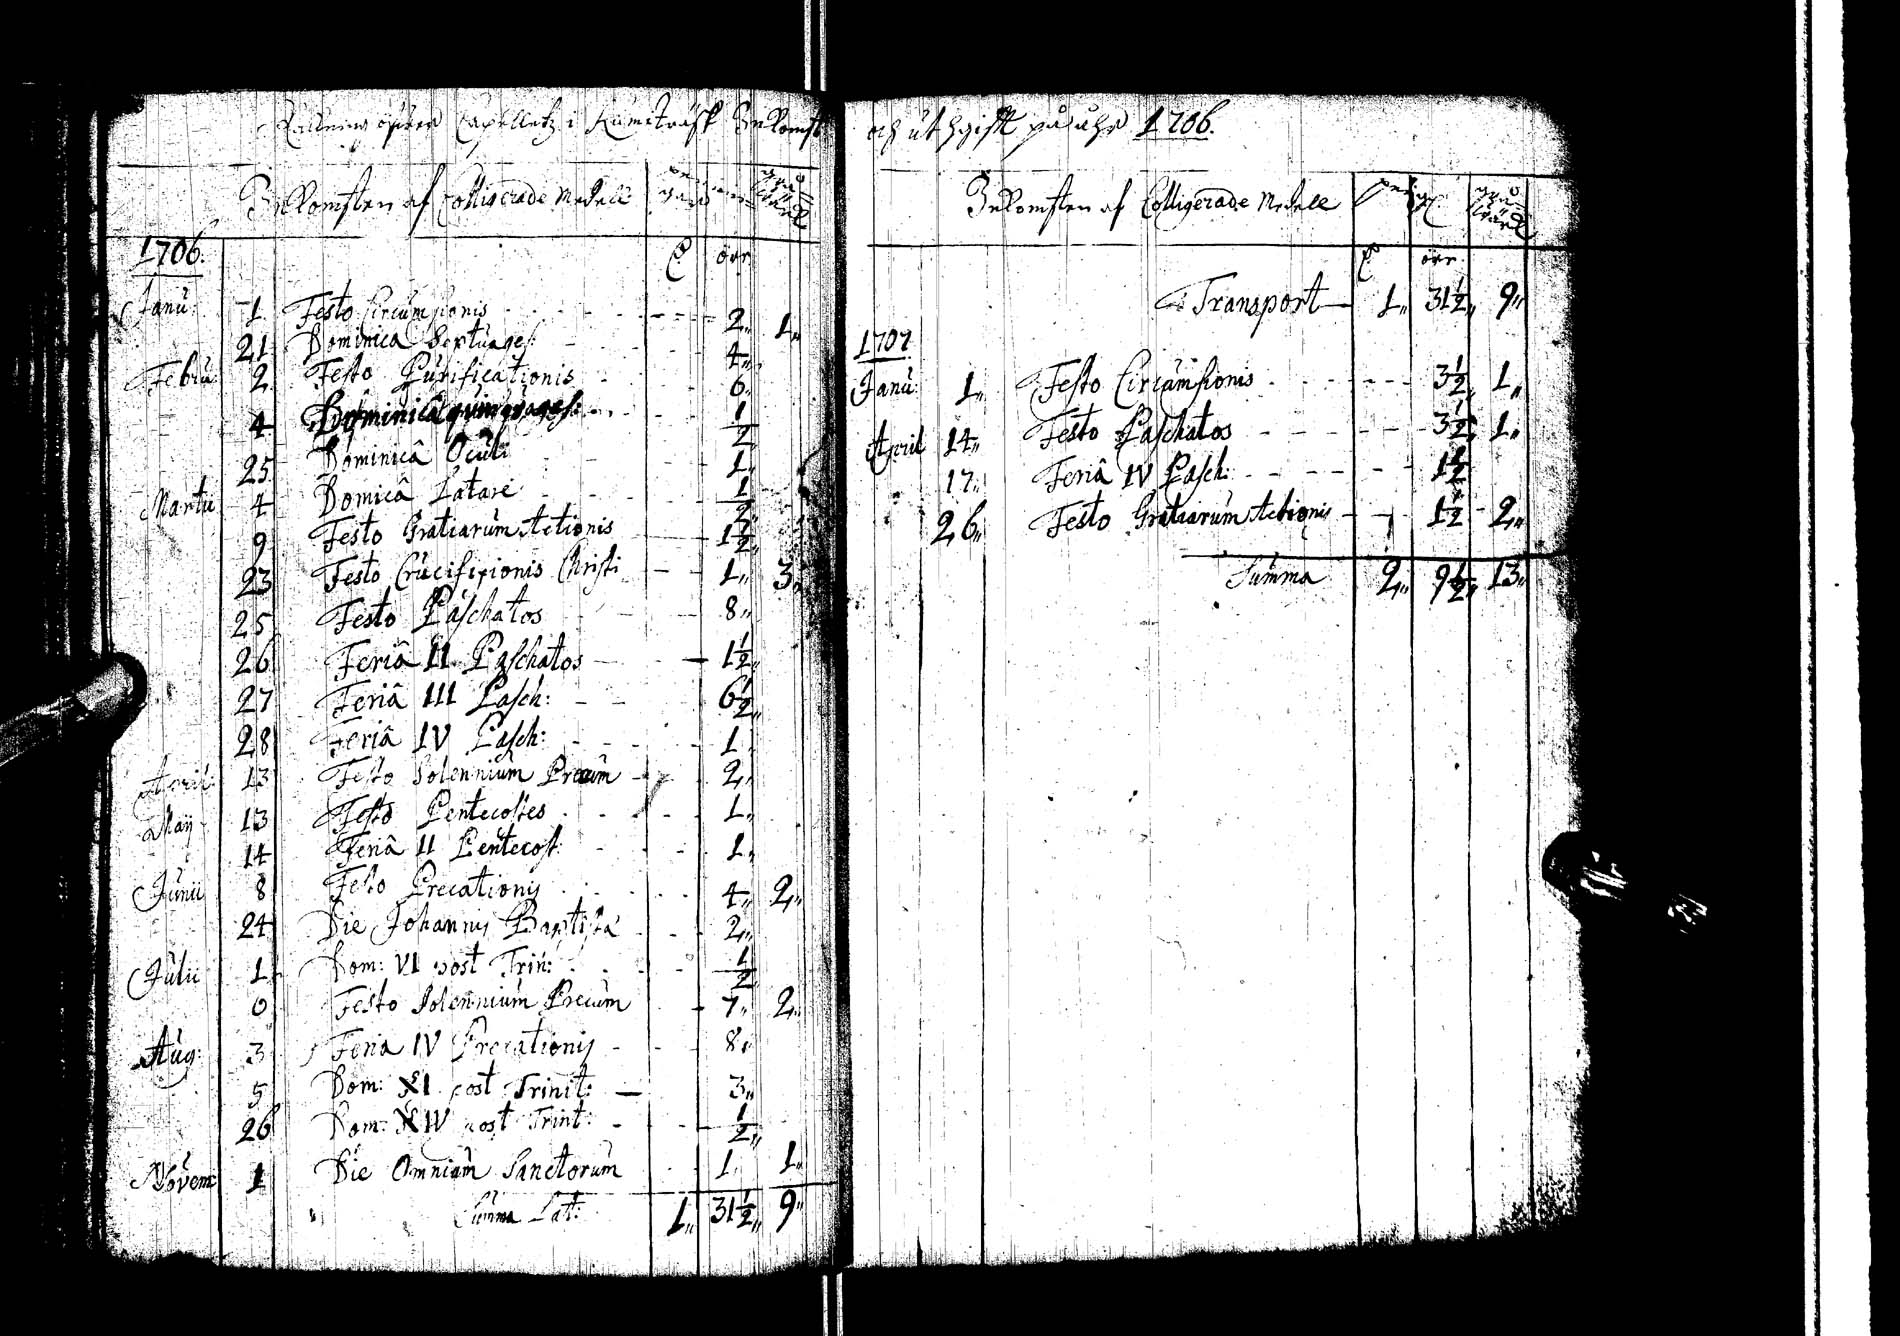 Räkning öfver Capelletz i Kumeträsk Inkomst
Inkomsten af Colligerade Medell
1706.
öre
Janu: 1 Festo Circumsionis 2 1
21 Dominica Septuages: 4
Febru: 2 Festo Purificationis 6
4 Dominica quinquages: 1/2
25 Dominicâ Oculi 1
Martii 4 Domicâ Latare 1/2
9 Festo Gratiarum Actionis 1 1/2
23 Festo Crucifixionis Christi 1 3
25 Festo Paschatos 8
26 Feriâ II Paschatos 1 1/2
27 Feriâ III Pasch: 6 1/2
28 Feriâ IV Pasch: 1
April: 13 Festo Solennium Precum 2
Maij 13 Festo Pentecostes 1
14 Feriâ II Pentecost: 1
Junii 8 Festo Precationis 4 2
24 Die Johannis Baptista 2
Julii 1 Dom: VI post Trin: 1/2
6 Festo Solennium Precum 7 2
Aug: 3 Feria IV Precationis 8
5 Dom: XI post Trinit: 3
26 Dom: XIV post Trint: 1/2
Novem: 1 Die Omnium Sanctorum 1 1
Summa Lat: 1 31 1/2 9
och uthgift på åhr 1706.
Inkomsten af Colligerade Medell
öre
Transport 1 31 1/2 9
1707
Janu: 1 Festo Circumsionis 3 1/2 1
April 14 Festo Paschatos 3 1/2 1
17 Feriâ IV Pasch: 1 1/2
26 Festo Gratiarum Actionis 1 1/2 2
Summa 2 9 1/2 13